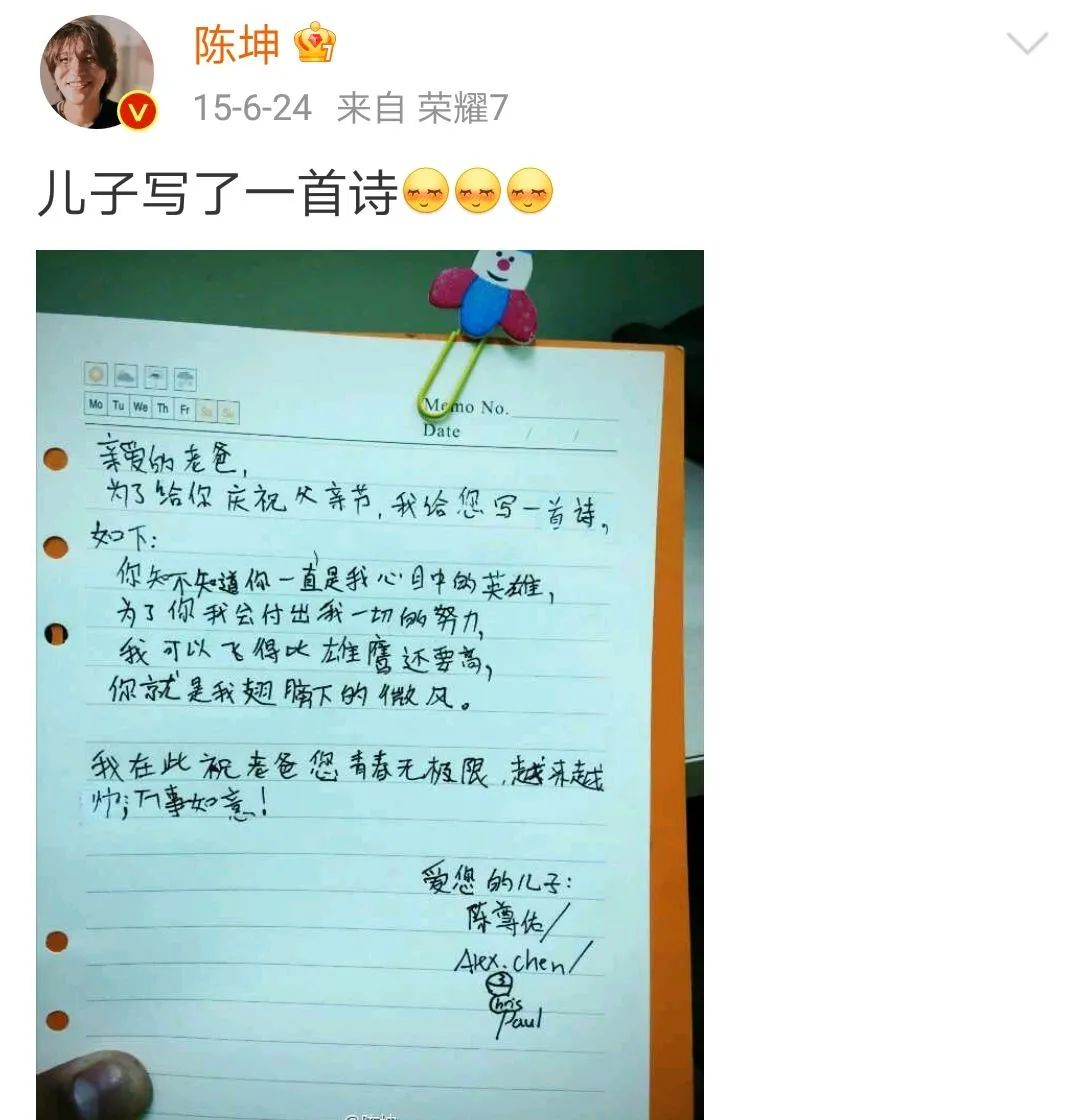 陈坤
15-6-24 来自 荣耀7
儿子写了一首诗
Mo Tu We Th Fr Sa Su
Memo No.
Date / /
亲爱的老爸,
为了给你庆祝父亲节,我给您写一首诗,
如下:
你知不知道你一直是我心目中的英雄,
为了你我会付出我一切的努力,
我可以飞得比雄鹰还要高,
你就是我翅膀下的微风。
我在此祝老爸您青春无极限,越来越
帅;万事如意!
爱您的儿子:
陈尊佑/
Alex.chen/
3
Chris
Paul
@陈坤